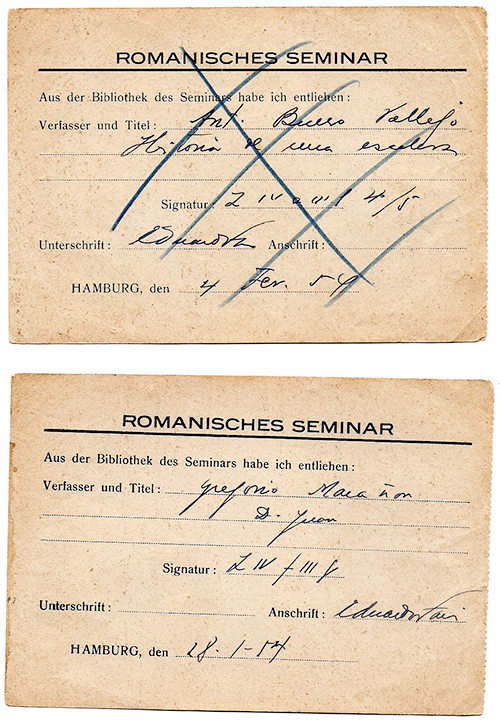 ROMANISCHES SEMINAR
Aus der Bibliothek des Seminars habe ich entliehen:
Verfasser und Titel: Ant. Buero Vallejo
Historia de una escalera
Signatur: Z IV 4/5
Unterschrift: Anschrift:
HAMBURG, den 4 Fev. 54
ROMANISCHES SEMINAR
Aus der Bibliothek des Seminars habe ich entliehen:
Verfasser und Titel: Gregorio Marañon
D. Juan
Signatur: Z IV / III
Unterschrift: Anschrift:
HAMBURG, den 28.1-54